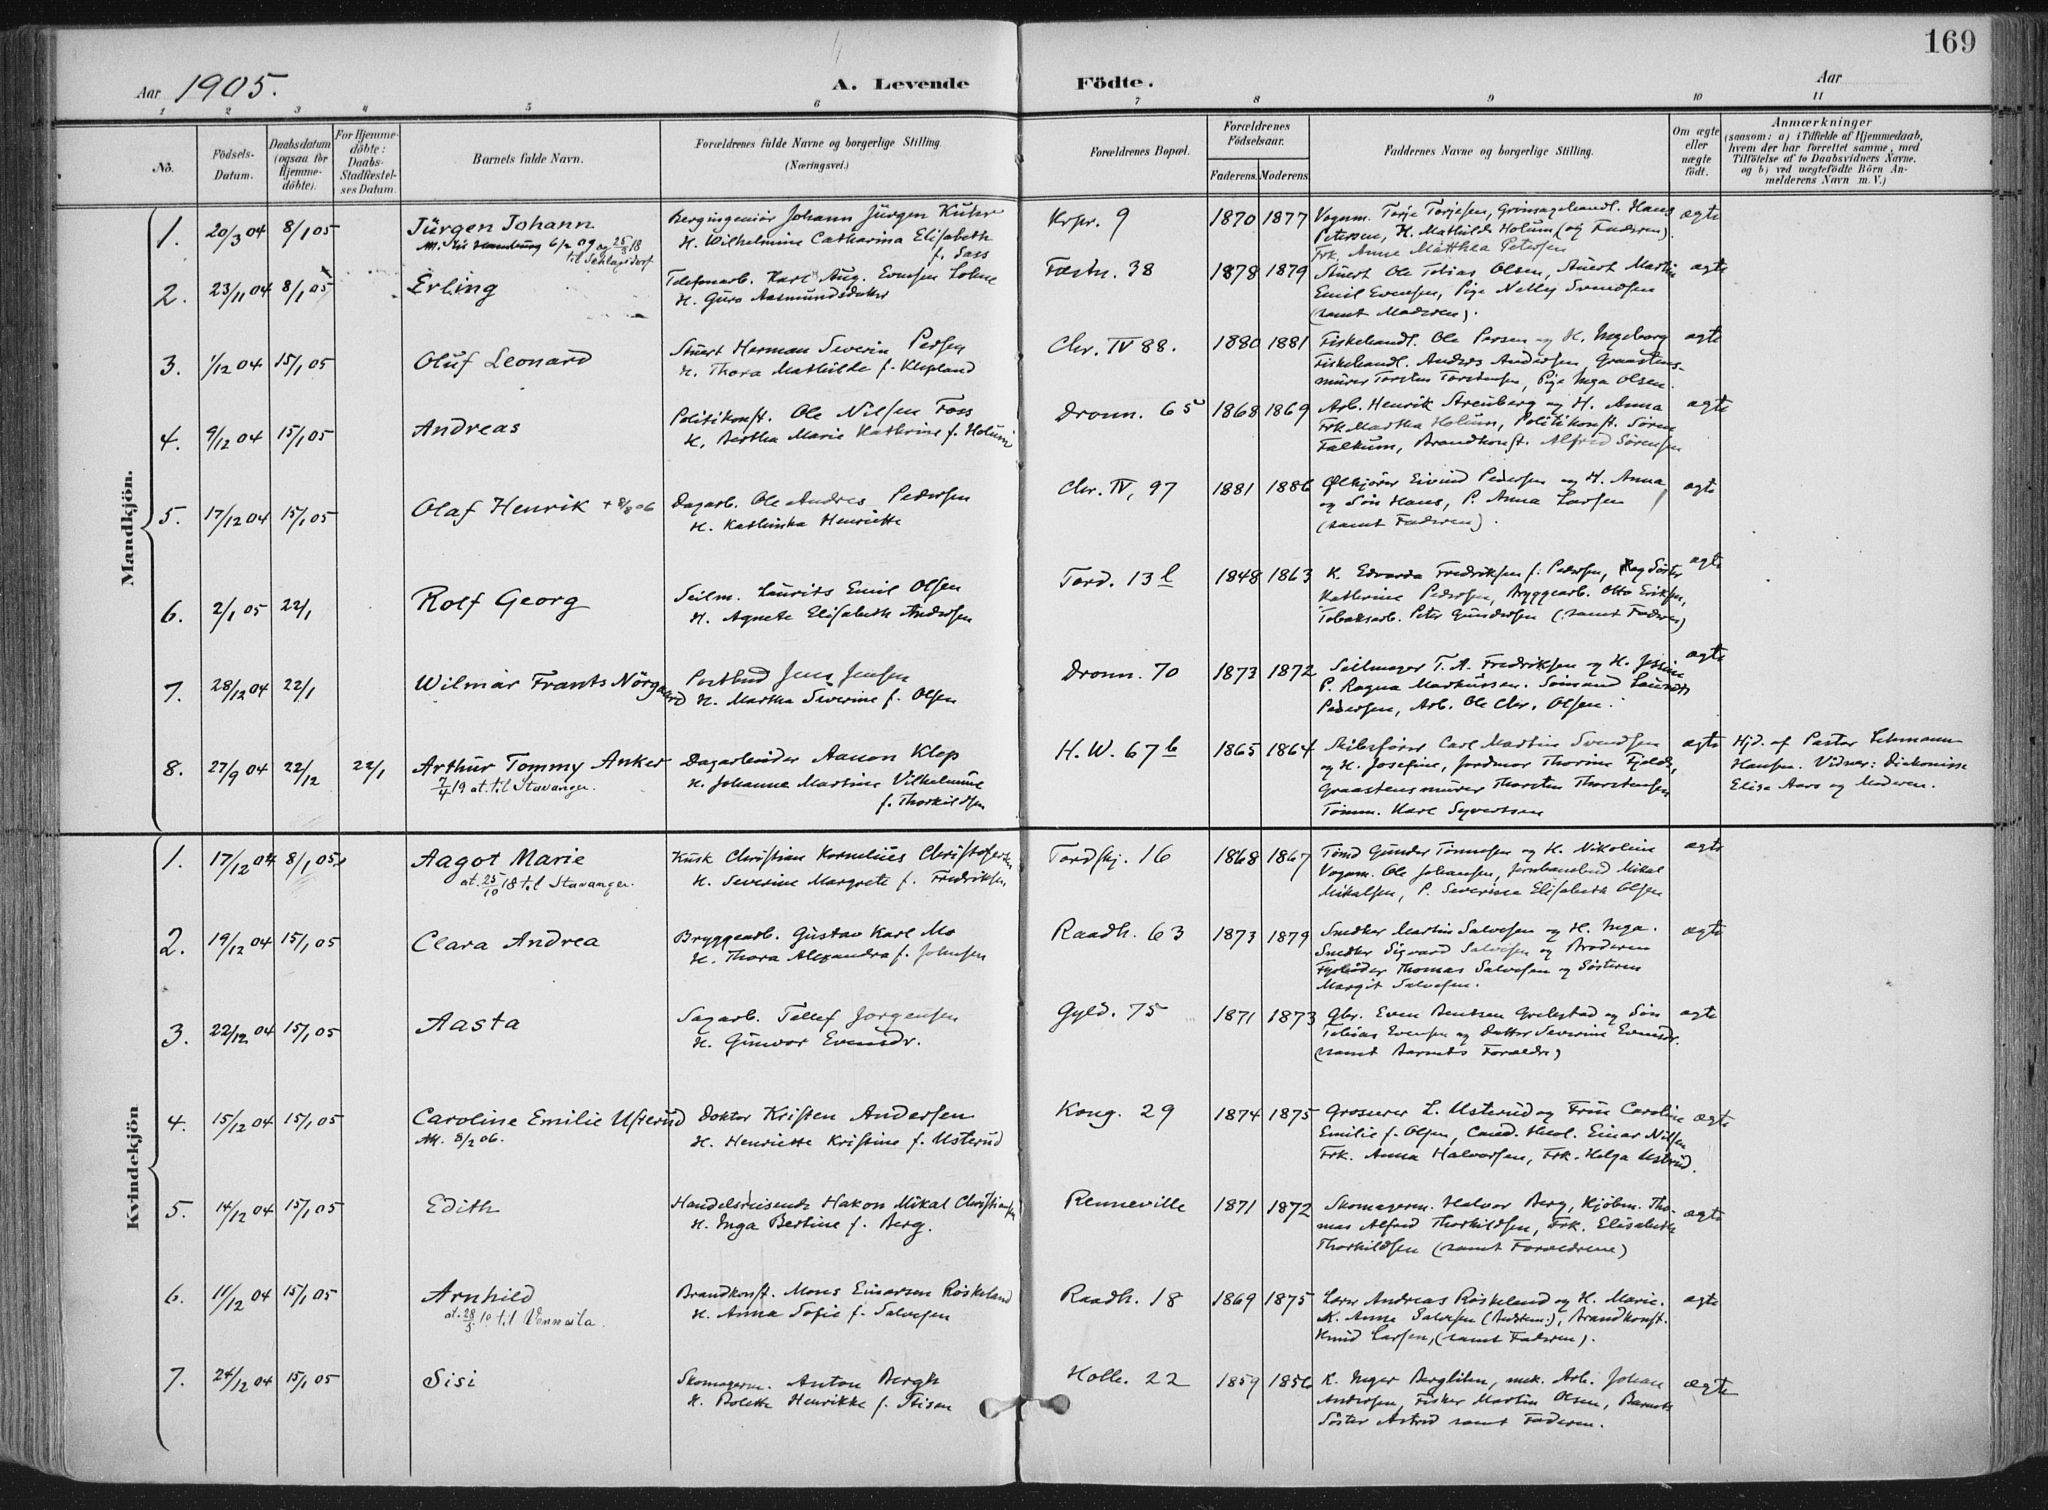 169
Aar 1905.
A. Levende Födte.
Aar
1 2 3 4 5 6 7 8 9 10 11
No.
Födsels-
Datum.
Daabsdatum
(ogsaa for
Hjemme-
döbte).
For Hjemme-
döbte:
Daabs-
Stadfæstel-
ses Datum.
Barnets fulde Navn.
Forældrenes fulde Navne og borgerlige Stilling
(Næringsvei.)
Forældrenes Bopæl.
Forældrenes
Födselsaar.
Faderens. Moderens
Faddernes Navne og borgerlige Stilling.
Om ægte
eller
uægte
födt.
Anmærkninger
(saasom: a) i Tilfælde af Hjemmedaab,
hvem der har forrettet samme, med
Tilföielse af to Daabsvidners Navne.
og b) ved uægtefödte Börn An-
melderens Navn m. V.)
Mandkjön.
1. 20/3 04 8/1 05 Jürgen Johann Bergingeniör Johann Jürgen Kuhr Krpr. 9 1870 1877 Vognm. Torje Torjesen, Hans ægte
H. Wilhelmine Catharina Elisabeth Petersen, H. Mathilde Holum (og Faderen).
f. Sass Frk. Anne Matthea Petersen
2. 23/11 04 8/1 05 Erling Telefonarb. Karl Aug. Evensen Fæstn. 38 1878 1879 Stuert Ole Tobias Olsen, Stuert Martin ægte
H. Guro Aasmundsdatter Emil Evensen, Pige Nelly Svendsen
(samt Moderen).
3. 1/12 04 15/1 05 Oluf Leonard Stuert Herman Severin Chr. IV 88. 1880 1881 Fiskehandl. Ole og H. Ingeborg ægte
H. Thora Mathilde f. Klepland Fiskehandl. Andres Andersen, Graastens-
mürer Torsten Torstensen, Pige Inga Olsen.
4. 9/12 04 15/1 05 Andreas Politikonst. Ole Nilsen Foss Dronn. 65 1868 1869 Arb. Henrik Strenberg og H. Anna ægte
H. Bertha Marie Kathrine f. Holum Frk Martha Holum, Politikonst. Sören
Falkum, Brandkonst. Alfred Sörensen
5. 17/12 04 15/1 05 Olaf Henrik + 8/8 06 Dagarb. Ole Andres Pedersen Chr. IV, 97 1881 1886 Ølkjörer Eivind Pedersen og H. Anna ægte
H. Kathinka Henriette og Sön Hans, P. Anna Larsen
(samt Faderen).
6. 2/1 05 22/1 Rolf Georg Seilm. Laurits Emil Olsen Tord. 13 1848 1863 K. Edvarda Fredriksen f. Pedersen, ægte
H. Agnete Elisabeth Andersen Kathrine Pedersen, Bryggearb. Otto Eriksen,
Tobaksarb. Peter Gundersen (samt Faderen)
7. 28/12 04 22/1 Wilmar Frants Nörgaard Postbud Jens Jensen Dronn. 70 1873 1872 Seilmager T. A. Fredriksen og H. Jessine ægte
H. Martha Severine f. Olsen P. Ragna Markussen. Sömand Laurits
Pedersen, Arb. Ole Chr. Olsen.
8. 27/9 04 22/12 22/1 Arthur Tommy Anker Dagarbeider Aanon Klep H. W. 67 b 1865 1864 Skibsförer Carl Martin Svendsen ægte Hjd. af Pastor Lehmann
7/4 19 at. til Stavanger. H. Johanne Martine Vilhelmine og H. Josefine, Jordmor Thorine Fjelds, Hansen. Vidner: Diakonisse
f. Thorkildsen Graastensmürer Thorsten Thorstensen Elise Aars og Moderen.
Tömm. Karl Syvertsen
Kvindekjön
1. 17/12 04 8/1 05 Aagot Marie Kusk Christian Kornelius Christofersen Tordskj. 16 1868 1867 Tömd Gunder Tönnesen og H. Nikoline ægte
at. 25/10 18 til Stavanger. H. Severine Margrete f. Fredriksen Vognm. Ole Johansen, Jernbanebud Mikal
Mikalsen, P. Severine Elisabeth Olsen
2. 19/12 04 15/1 05 Clara Andrea Bryggearb. Gustav Karl Mo Raadh. 63 1873 1879 Snedker Martin Salvesen og H. Inga. ægte
H. Thora Alexandra f. Johnsen Snedker Sigvard Salvesen og Broderen
Fyrböder Thomas Salvesen og Söstern
Margit Salvesen.
3. 22/12 04 15/1 05 Aasta Sagarb. Tellef Jorgensen Gyld. 75 1871 1873 Gbr. Even Bentsen Grebstad og Sön ægte
H. Gunvor Evensdr. Tobias Evensen og Datter Severine Evensdr.
(samt Barnets Forældre)
4. 15/12 04 15/1 05 Caroline Emilie Usterud Doktor Kristen Andersen Kong. 29 1874 1875 Grosserer L. Usterud og Frue Caroline ægte
8/2 06. H. Henriette Kristine f. Usterud Emilie f. Olsen, Cand. theol. Einar Nilsen
Frk. Anna Halvorsen, Frk. Helga Usterud.
5. 14/12 04 15/1 05 Edith Handelsreisende Hakon Mikal Christiansen Renneville 1871 1872 Skomagerm. Halvor Berg, Kjöbm. Tho- ægte
H. Inga Bertine f. Berg. mas Alfred Thorkildsen, Frk. Elisabeth
Thorkildsen (samt Forældrene)
6. 11/12 04 15/1 05 Arnhild Brandkonst. Mons Einarsen Röskeland Raadh. 18 1869 1875 Lærer Andreas Röskeland og H. Marie. ægte
at. 28/5 10 til Vennesla. H. Anna Sofie f. Salvesen K. Anne Salvesen, Brandkonst.
Knud Larsen, (samt Faderen).
7. 24/12 04 15/1 05 Sisi Skomagerm. Anton Bergh Holb. 22 1859 1856 K. Inger Berglihn, mek. Arb. Johan ægte
H. Bolette Henrikke f. Stisen Andersen, Fisker Martin Olsen, Barnets
Söster Astrid samt Faderen.